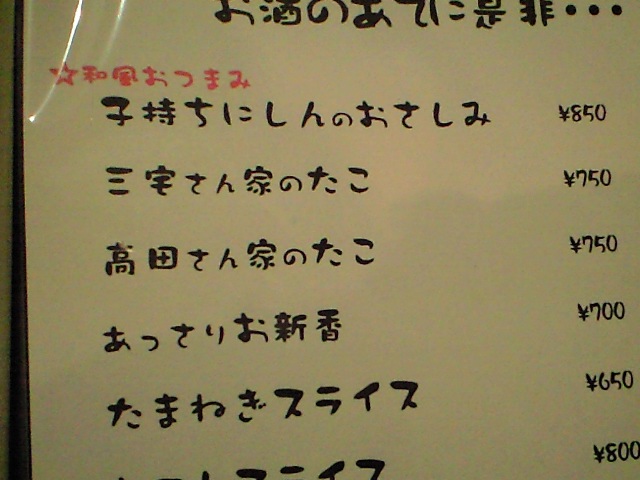 お酒のあてに是非・・・
☆和風おつまみ
子持ちにしんのおさしみ ¥850
三宅さん家のたこ ¥750
高田さん家のたこ ¥750
あっさりお新香 ¥700
たまねぎスライス ¥650
スライス ¥800